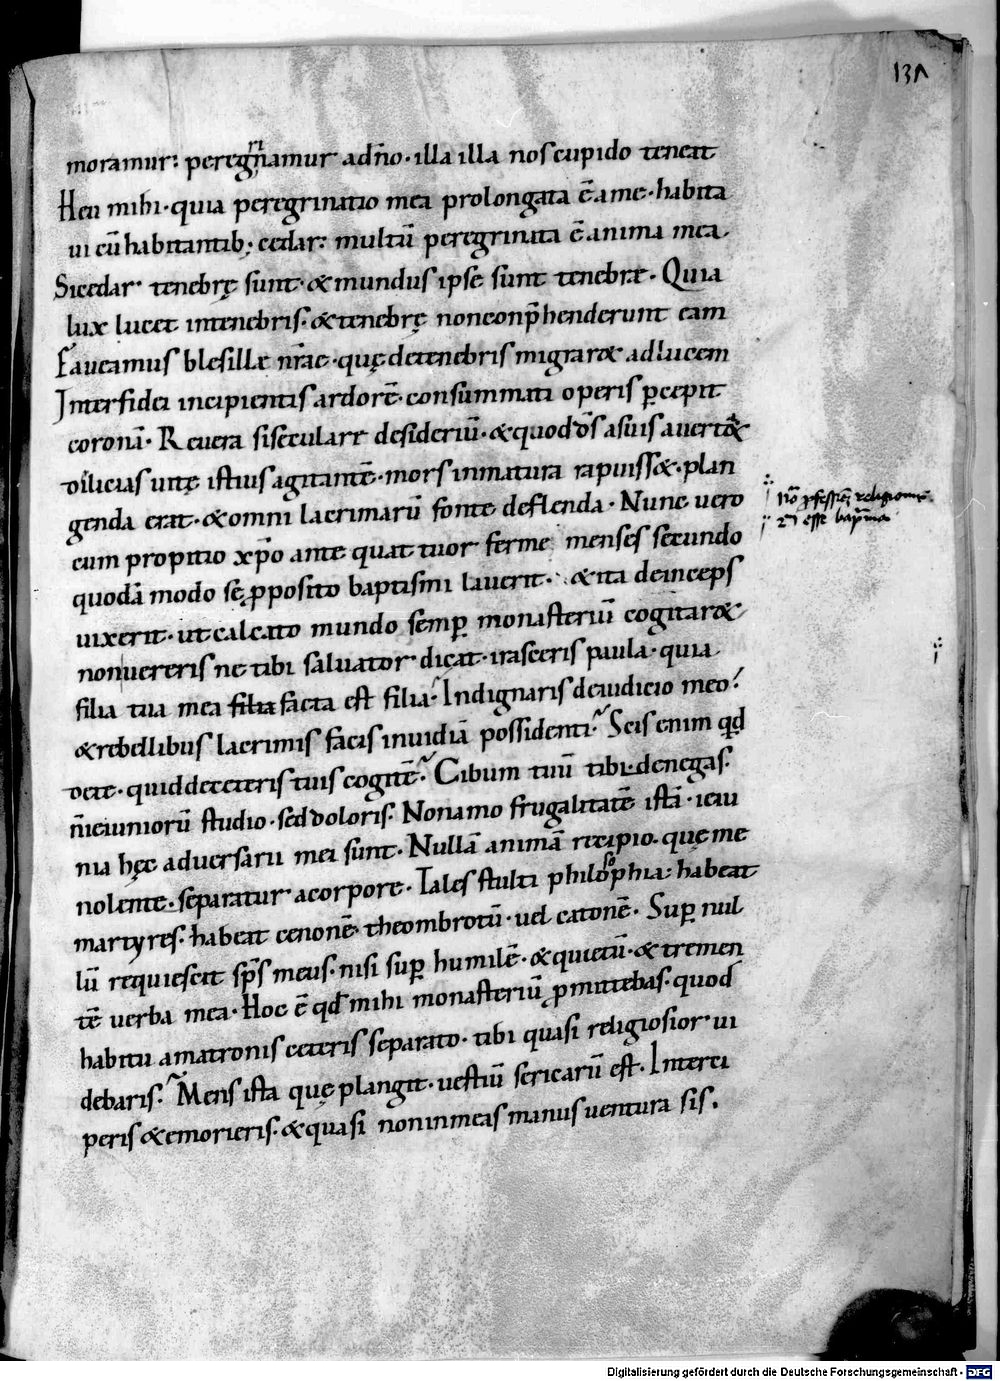 131
moramur: peregrinamur adn̄o · illa illa nos cupido teneat
Heu mihi · quia peregrinatio mea prolongata ē ame · habita
ui cū habitantib; cedar: multū peregrinata ē anima mea ·
Si cedar tenebrę sunt · & mundus ipse sunt tenebræ · Quia
lux lucet in tenebris · & tenebrę non con p̄henderunt eam
Faueamus blesillæ nr̄ae · quę de tenebris migrar& ad lucem
Inter fidei incipientis ardorē · consummati operis p̱cepit
coronā · Reuera si seculare desideriū · & quod d̄s a suis auert&
delicias uitę istius agitantē · mors inmatura rapuiss& · plan
genda erat · & omni lacrimarū fonte deflenda · Nunc uero
cum propitio xp̄o ante quattuor ferme menses secundo
quodā modo sę p̱posito baptismi lauerit · & ita deinceps
uixerit · ut calcato mundo semp̱ monasteriū cogitar&
non uereris ne tibi saluator dicat · irasceris paula · quia
filia tua mea filia facta est filia? Indignaris de iudicio meo?
& rebellibus lacrimis facis inuidiā possidenti? Scis enim qđ
de te · quid de ceteris tuis cogitē? Cibum tuū tibi denegas ·
n̄ ieiuniorū studio · sed doloris · Non amo frugalitatē istā · ieiu
nia hęc aduersarii mei sunt · Nullā animā recipio · quę me
nolente · separatur a corpore · Tales stulti philosophia: habeat
martyres · habeat cenonē · theombrotū · uel catonē · Sup̱ nul
lū requiescit sp̄s meus · nisi sup̱ humilē · & quietū · & tremen
tē uerba mea · Hoc ē qđ mihi monasteriū p̱mittebas · quod
habitu a matronis ceteris separato · tibi quasi religiosior ui
debaris? Mens ista quę plangit · uestiū sericarū est · Interci
peris & emorieris · & quasi non in meas manus uentura sis ·
esse
Digitalisierung gefördert durch die Deutsche Forschungsgemeinschaft - DFG